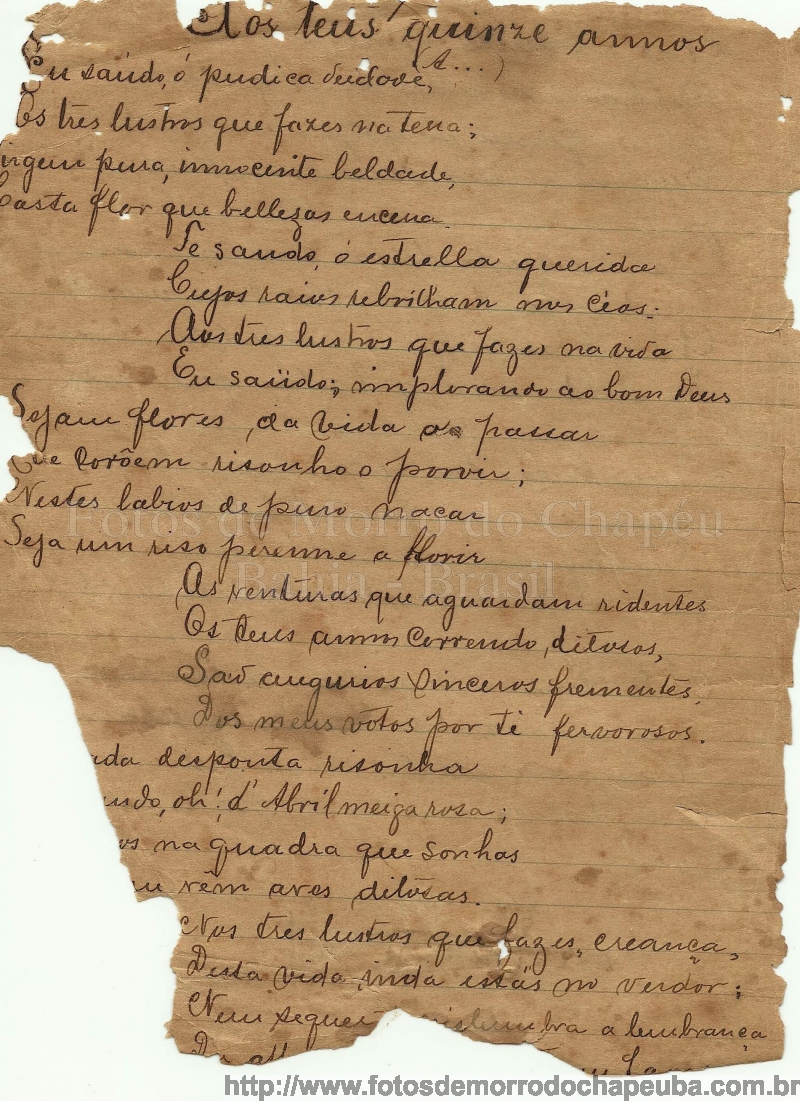 Aos teus quinze annos
(A...)
Eu saúdo, ó pudica deidade,
Os tres lustros que fazes na terra;
Virgem pura, innocente beldade,
Casta flor que bellezas encerra.
Te saudo, ó estrella querida
Cujos raios rebrilham nos céos:
Aos tres lustros que fazes na vida
Eu saúdo; implorando ao bom Deus
Sejam flores, da vida o passar
Que corôem risonho o porvir;
Nestes labios de puro nacar
Seja um riso perenne a florir
As venturas que aguardam ridentes
Os teus annos correndo, ditosos,
Saõ augurios sinceros frementes,
Dos meus votos por ti fervorosos.
desponta risonha
oh! d' Abril meiga rosa;
na quadra que sonhas
vêm aves ditósas.
Nos tres lustros que fazes, creança,
Desta vida, inda estás no verdor;
Nem sequer vislumbra a lembrança
Fotos de Morro do Chapéu
Bahia - Brasil
http://www.fotosdemorrodochapeuba.com.br